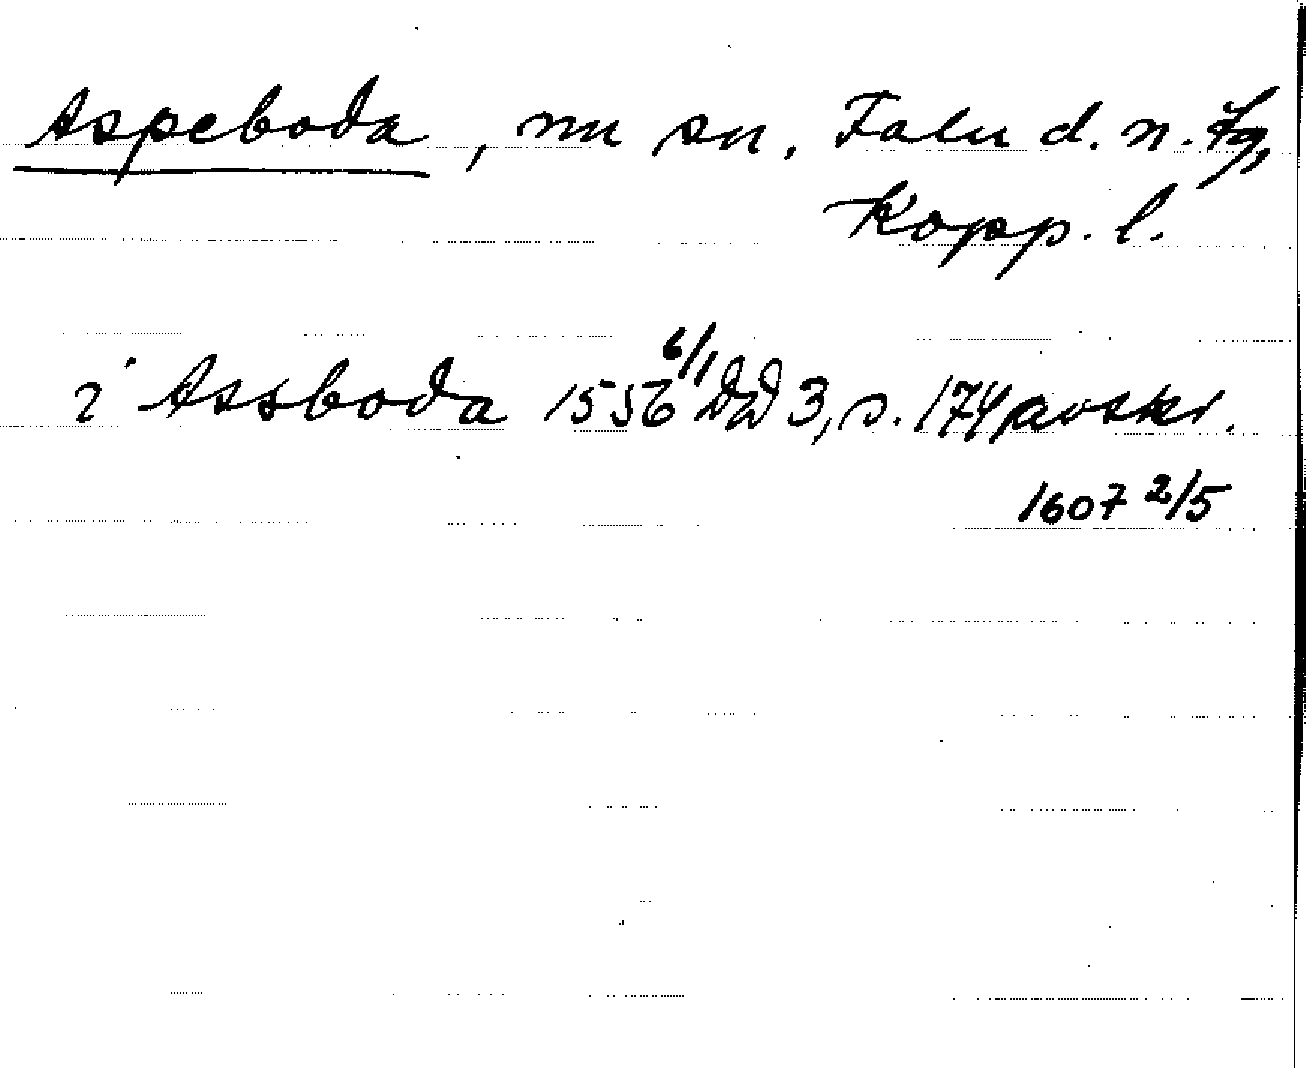 Aspeboda, nu sn, Falu d. n. tg,
Kopp. l.
i Assboda 1556 6/1 DD 3, s. 174 avskr.
1607 2/5